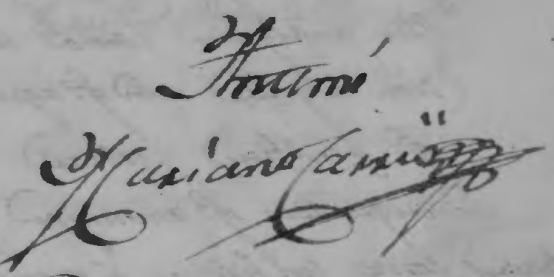 Ante mí
Mariano Carrión